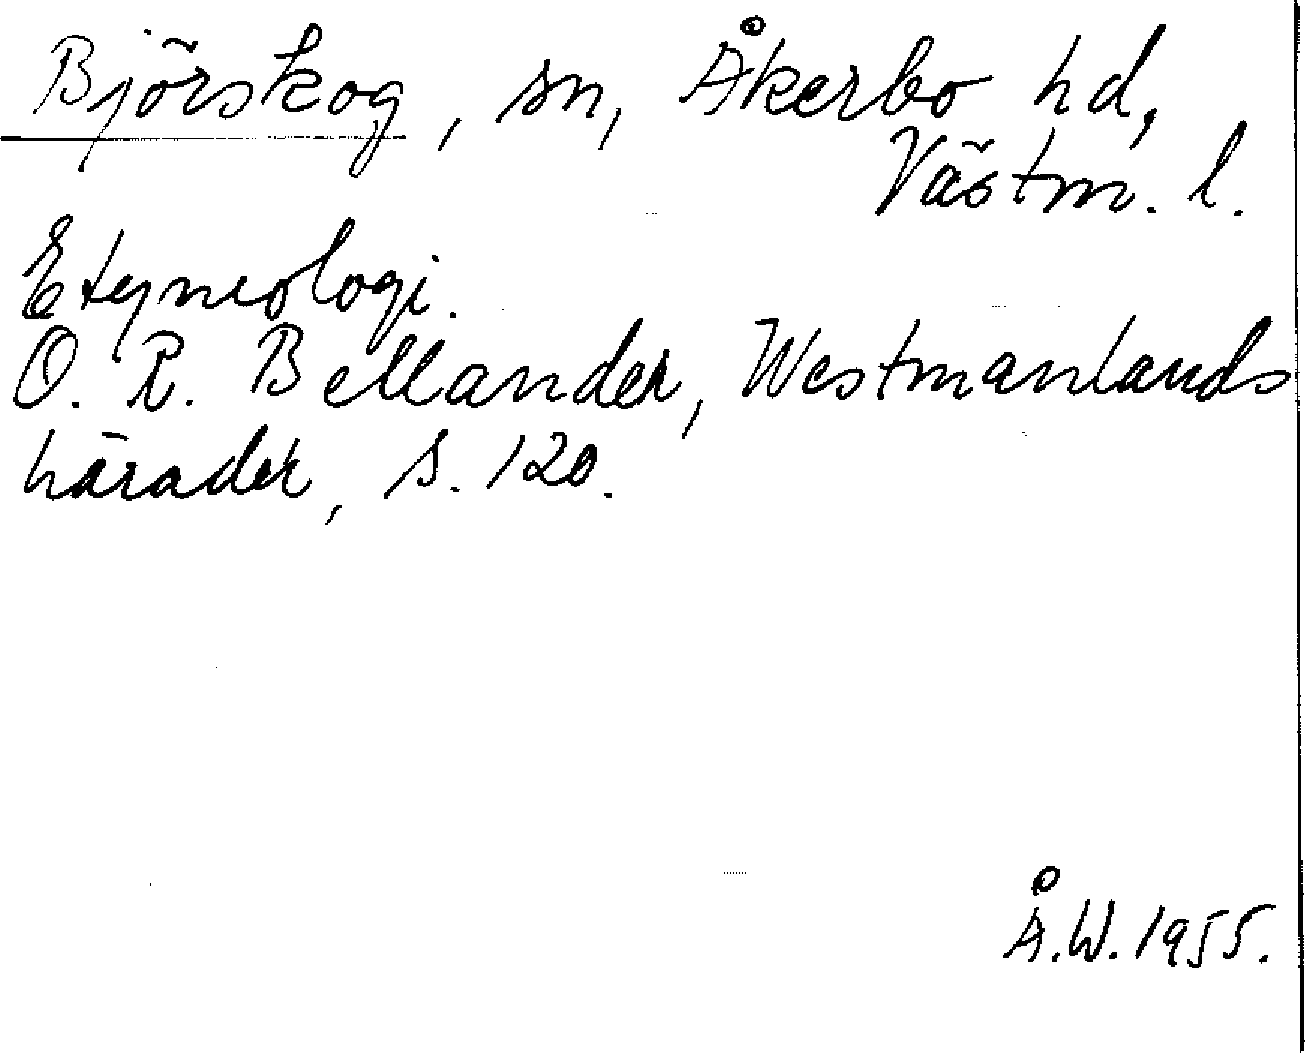 Björskog, sn, Åkerbo hd,
Västm. l.
Etymologi.
O. R. Bellander, Westmanlands
härader, s. 120.
Å.W. 1955.